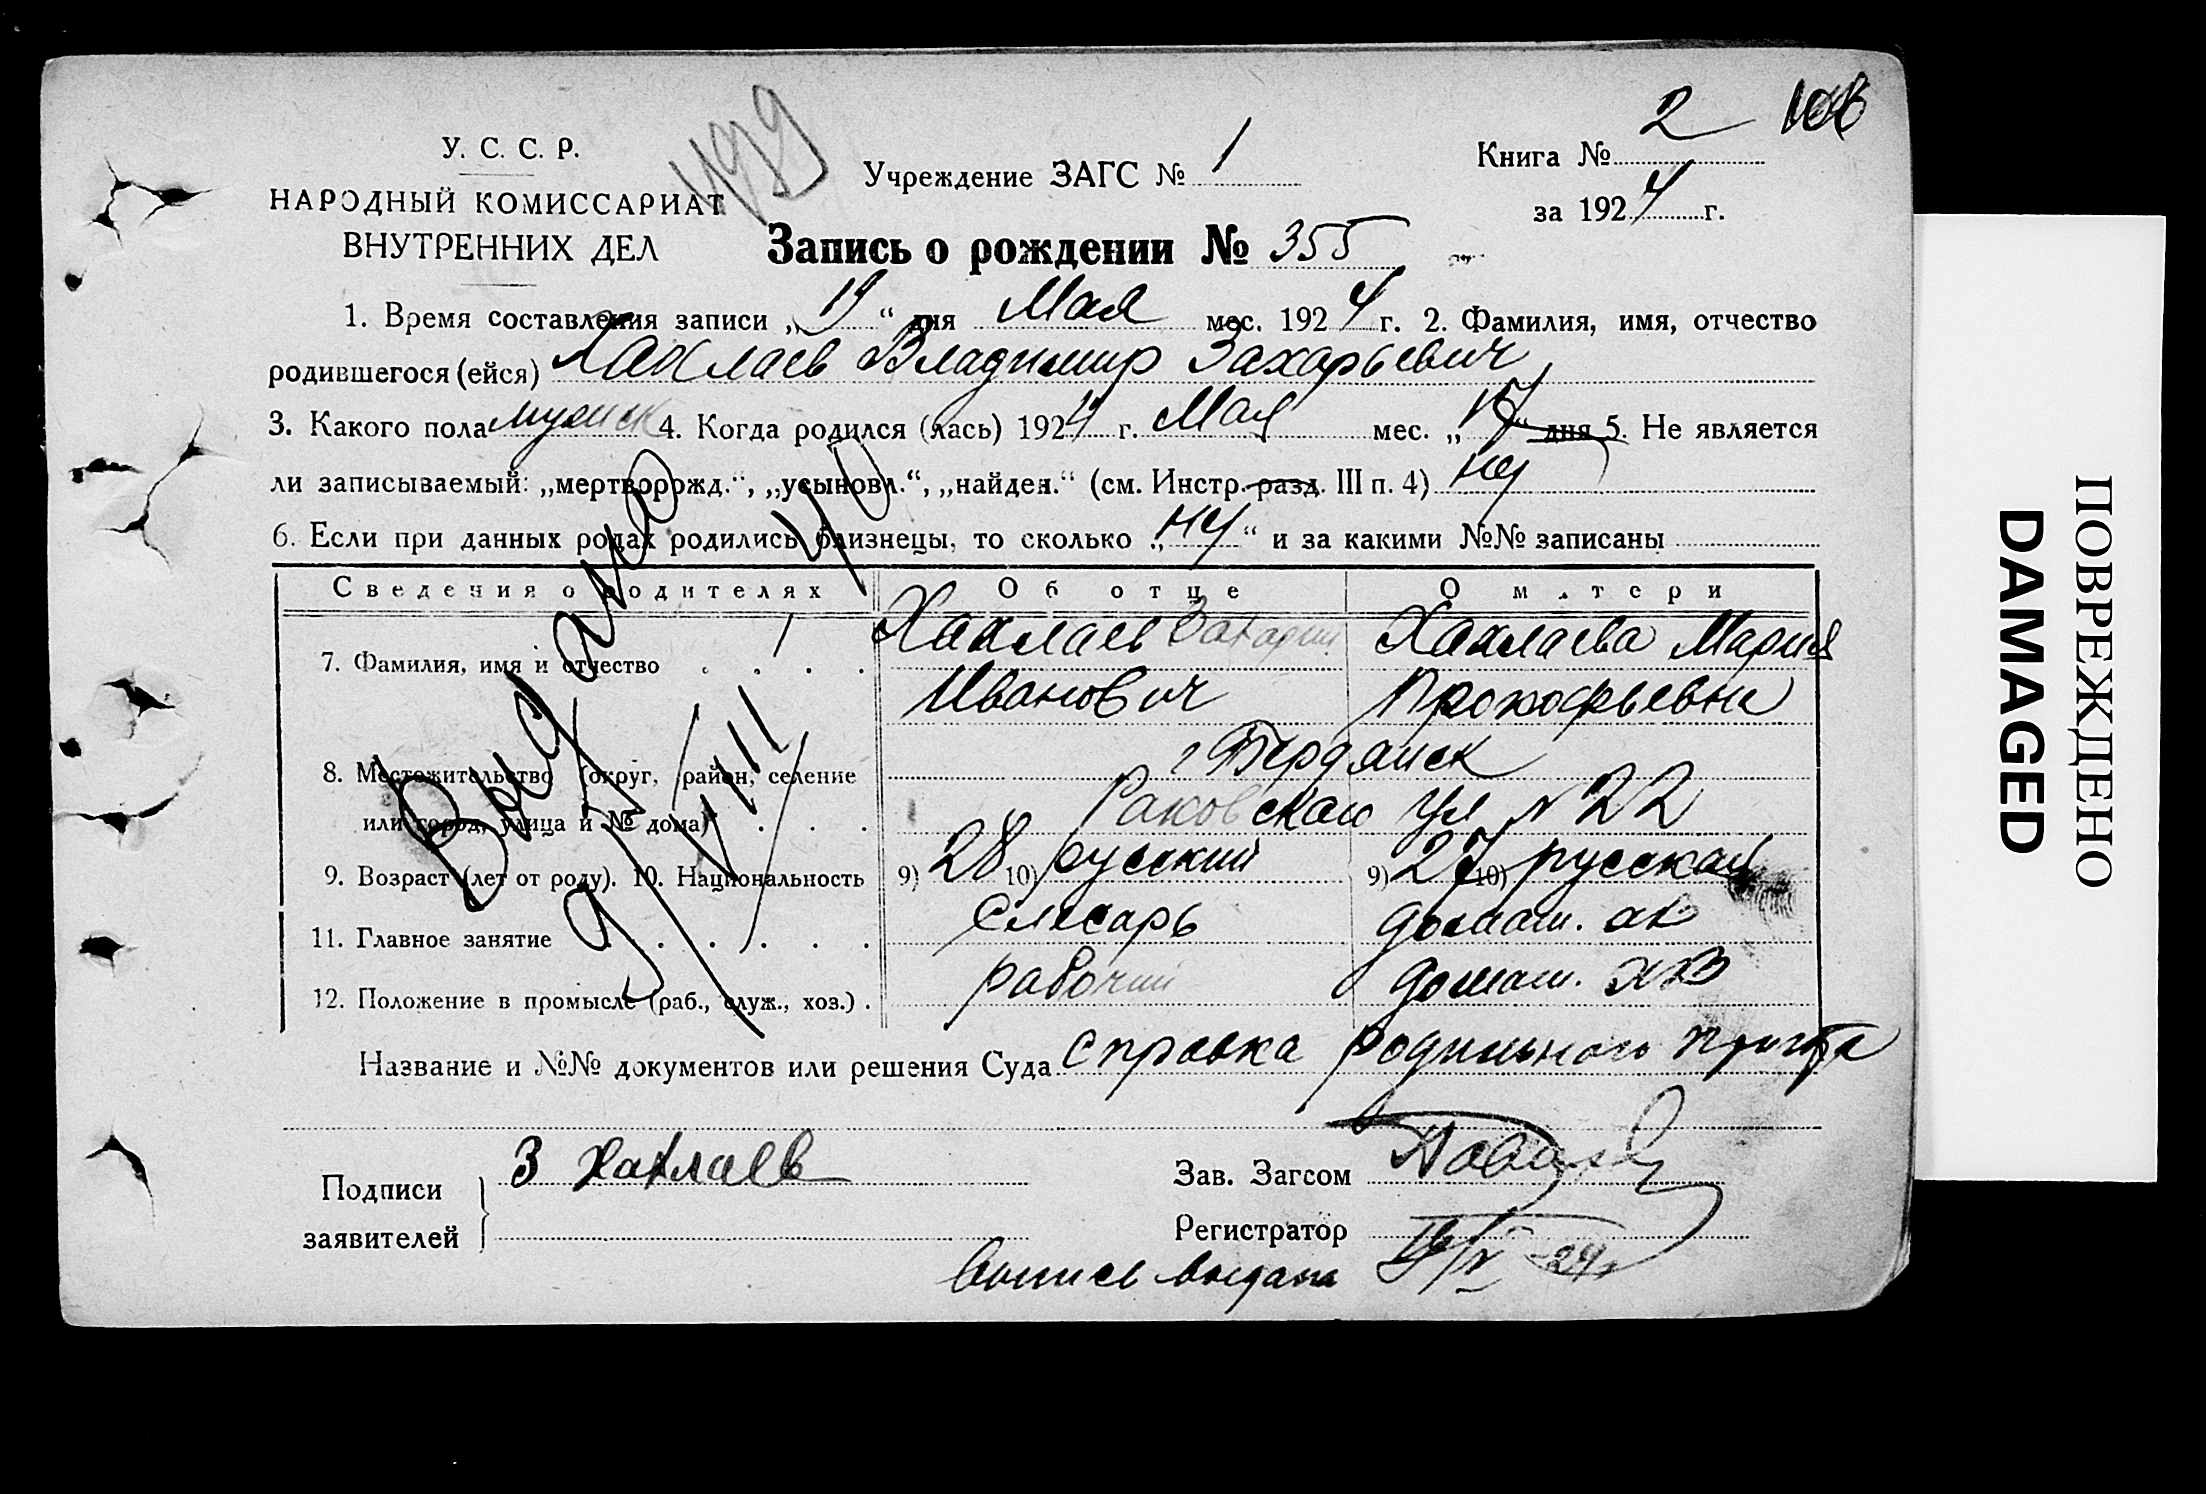 499
2 108
У. С. С. Р.
Учреждение ЗАГС № 1
Книга № 2
НАРОДНЫЙ КОМИССАРИАТ
за 1924 г.
ВНУТРЕННИХ ДЕЛ
Запись о рождении № 355
1. Время составления записи „19“ дня Мая мес. 1924 г. 2. Фамилия, имя, отчество
родившегося (ейся) Хахлаев Владимир Захарьевич
3. Какого пола мужск 4. Когда родился (лась) 1924 г. Мая мес. „17“ дня 5. Не является
ли записываемый: „мертворожд.“, „усыновл.“, „найден.“ (см. Инстр. разд. III п. 4) нет
6. Если при данных родах родились близнецы, то сколько „нет“ и за какими №№ записаны
Сведения о родителях Об отце О матери
7. Фамилия, имя и отчество Хахлаев Захарий Хахлаева Мария
Иванович Прокофьевна
8. Местожительство (округ, район, селение г Бердянск
или город, улица и № дома) Раковская ул №22
9. Возраст (лет от роду). 10. Национальность 9) 28 10) русский 9) 27 10) русская
11. Главное занятие Слесарь домаш. хоз
12. Положение в промысле (раб., служ., хоз.) рабочий домаш. хоз
Выдано
Название и №№ документов или решения Суда Справка родильного приюта
Подписи заявителей З Хахлаев
Зав. Загсом
Регистратор
выдана
ПОВРЕЖДЕНО
DAMAGED